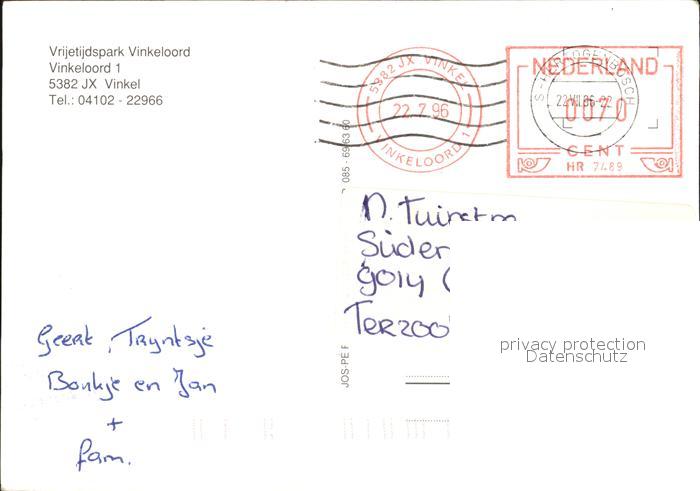 Vrijetijdspark Vinkeloord
Vinkeloord 1
5382 JX Vinkel
Tel.: 04102 - 22966
5382 JX VINKEL
22.7.96
VINKELOORD 1
NEDERLAND
0070
CENT
HR 7489
085 - 696360
JOS-PE
N.
Süder
9014
TERZOO
Geert, Tryntsje
Bonkje en Jan
+
fam.
privacy protection
Datenschutz